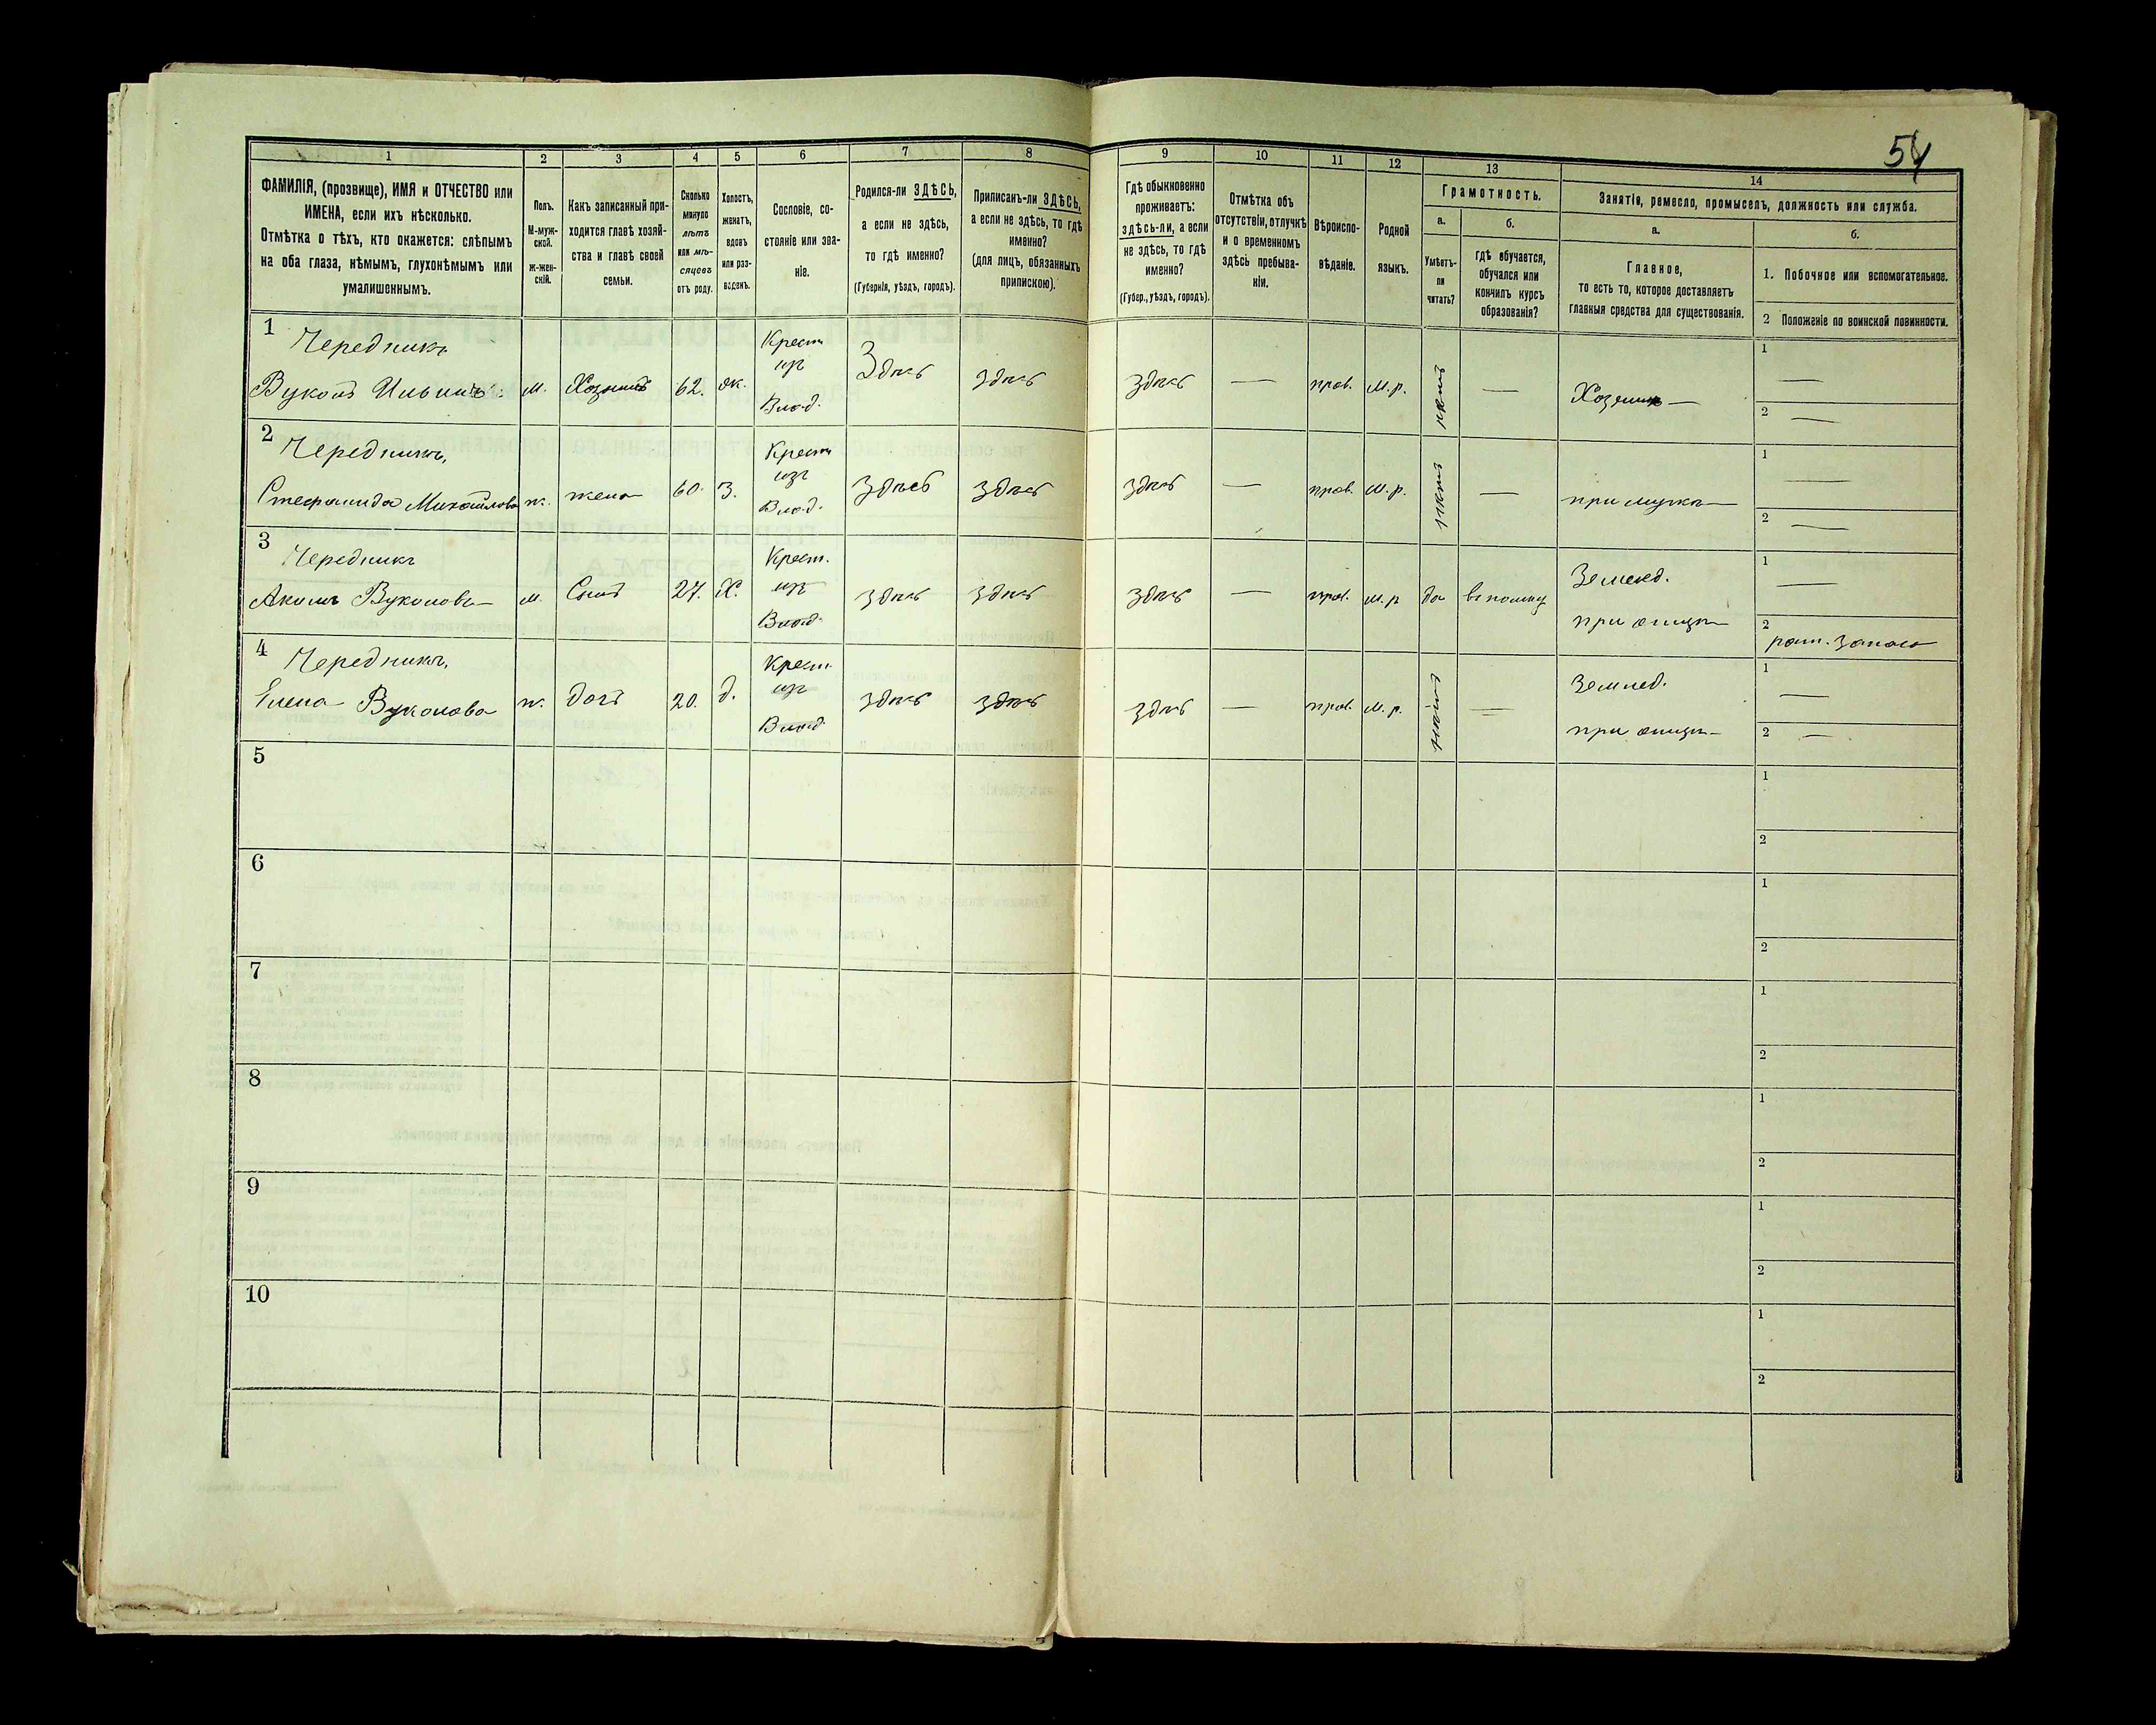 54
1 2 3 4 5 6 7 8 9 10 11 12 13 14
ФАМИЛІЯ, (прозвище), ИМЯ и ОТЧЕСТВО или
ИМЕНА, если ихъ нѣсколько.
Отмѣтка о тѣхъ, кто окажется: слѣпымъ
на оба глаза, нѣмымъ, глухонѣмымъ или
умалишеннымъ.
Полъ.
М-муж-
ской.
ж-жен-
скій.
Какъ записанный при-
ходится главѣ хозяй-
ства и главѣ своей
семьи.
Сколько
минуло
лѣтъ
или мѣ-
сяцевъ
отъ роду.
Холостъ,
женатъ,
вдовъ
или раз-
веденъ.
Сословіе, со-
стояніе или зва-
ніе.
Родился-ли ЗДѢСЬ,
а если не здѣсь,
то гдѣ именно?
(Губернія, уѣздъ, городъ).
Приписанъ-ли ЗДѢСЬ,
а если не здѣсь, то гдѣ
именно?
(для лицъ, обязанныхъ
припискою).
Гдѣ обыкновенно
проживаетъ:
здѣсь-ли, а если
не здѣсь, то гдѣ
именно?
(Губер., уѣздъ, городъ).
Отмѣтка объ
отсутствіи, отлучкѣ
и о временномъ
здѣсь пребыва-
ніи.
Вѣроиспо-
вѣданіе.
Родной
языкъ.
Грамотность.
а.
Умѣетъ-
ли
читать?
б.
гдѣ обучается,
обучался или
кончилъ курсъ
образованія?
Занятіе, ремесло, промыселъ, должность или служба.
а.
Главное,
то есть то, которое доставляетъ
главныя средства для существованія.
б.
1. Побочное или вспомогательное.
2 Положеніе по воинской повинности.
1 Чередникъ Крест. 1 —
изъ
Вуколъ Ильинъ м. Хозяинъ 62. ж. Влад. Здѣсь здѣсь здѣсь — прав. м.р. нѣтъ — Хозяинъ — 2 —
2 Чередникъ, Крест. 1 —
изъ
Стефанида Михайлова ж. жена 60. З. Влад. здѣсь здѣсь здѣсь — прав. м.р. нѣтъ — при мужѣ — 2 —
3 Чередникъ Крест. Землед. 1 —
изъ
Акимъ Вуколовъ м. Сынъ 27. Х. Влад. здѣсь здѣсь здѣсь — прав. м.р да при отцѣ 2 рат. запаса
4 Чередникъ, Крест. Землед. 1 —
изъ
Елена Вуколова ж. дочь 20. д. Влад. здѣсь здѣсь здѣсь — прав. м.р. нѣтъ — при отцѣ 2 —
5 1
2
6 1
2
7 1
2
8 1
2
9 1
2
10 1
2